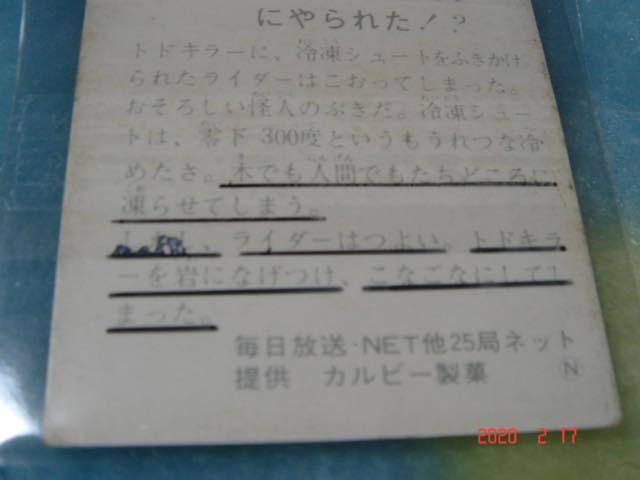 にやられた！？
トドキラーに、冷凍シュートをふきかけ
られたライダーはこおってしまった。
おそろしい怪人のぶきだ。冷凍シュー
トは、零下300度というもうれつな冷
めたさ。木でも人間でもたちどころに
凍らせてしまう。
、ライダーはつよい。トドキラ
ーを岩になげつけ、こなごなにしてし
まった。
毎日放送・NET他25局ネット
提供　カルビー製菓　Ⓝ
2020 2 17